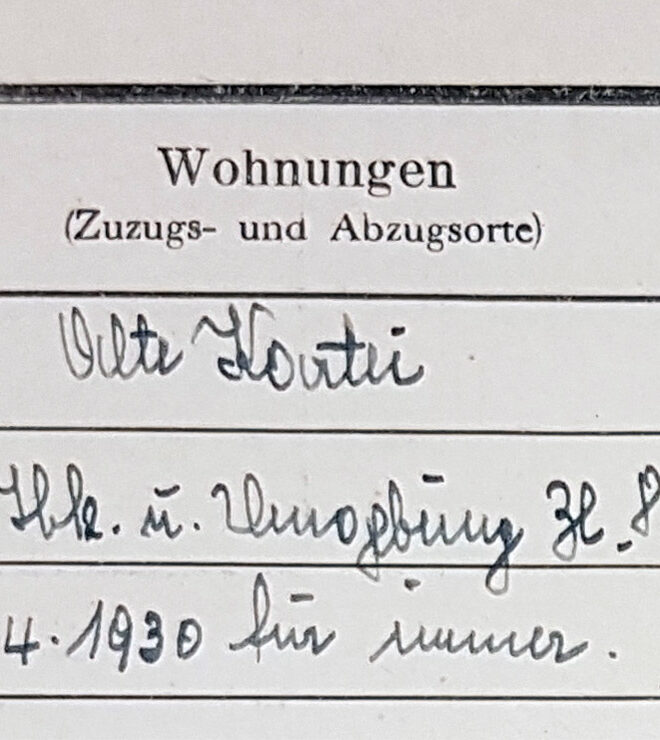 Wohnungen
(Zuzugs- und Abzugsorte)
Alte Kartei
Ibk. u. Umgebung Zl. 8
4. 1930 für immer.